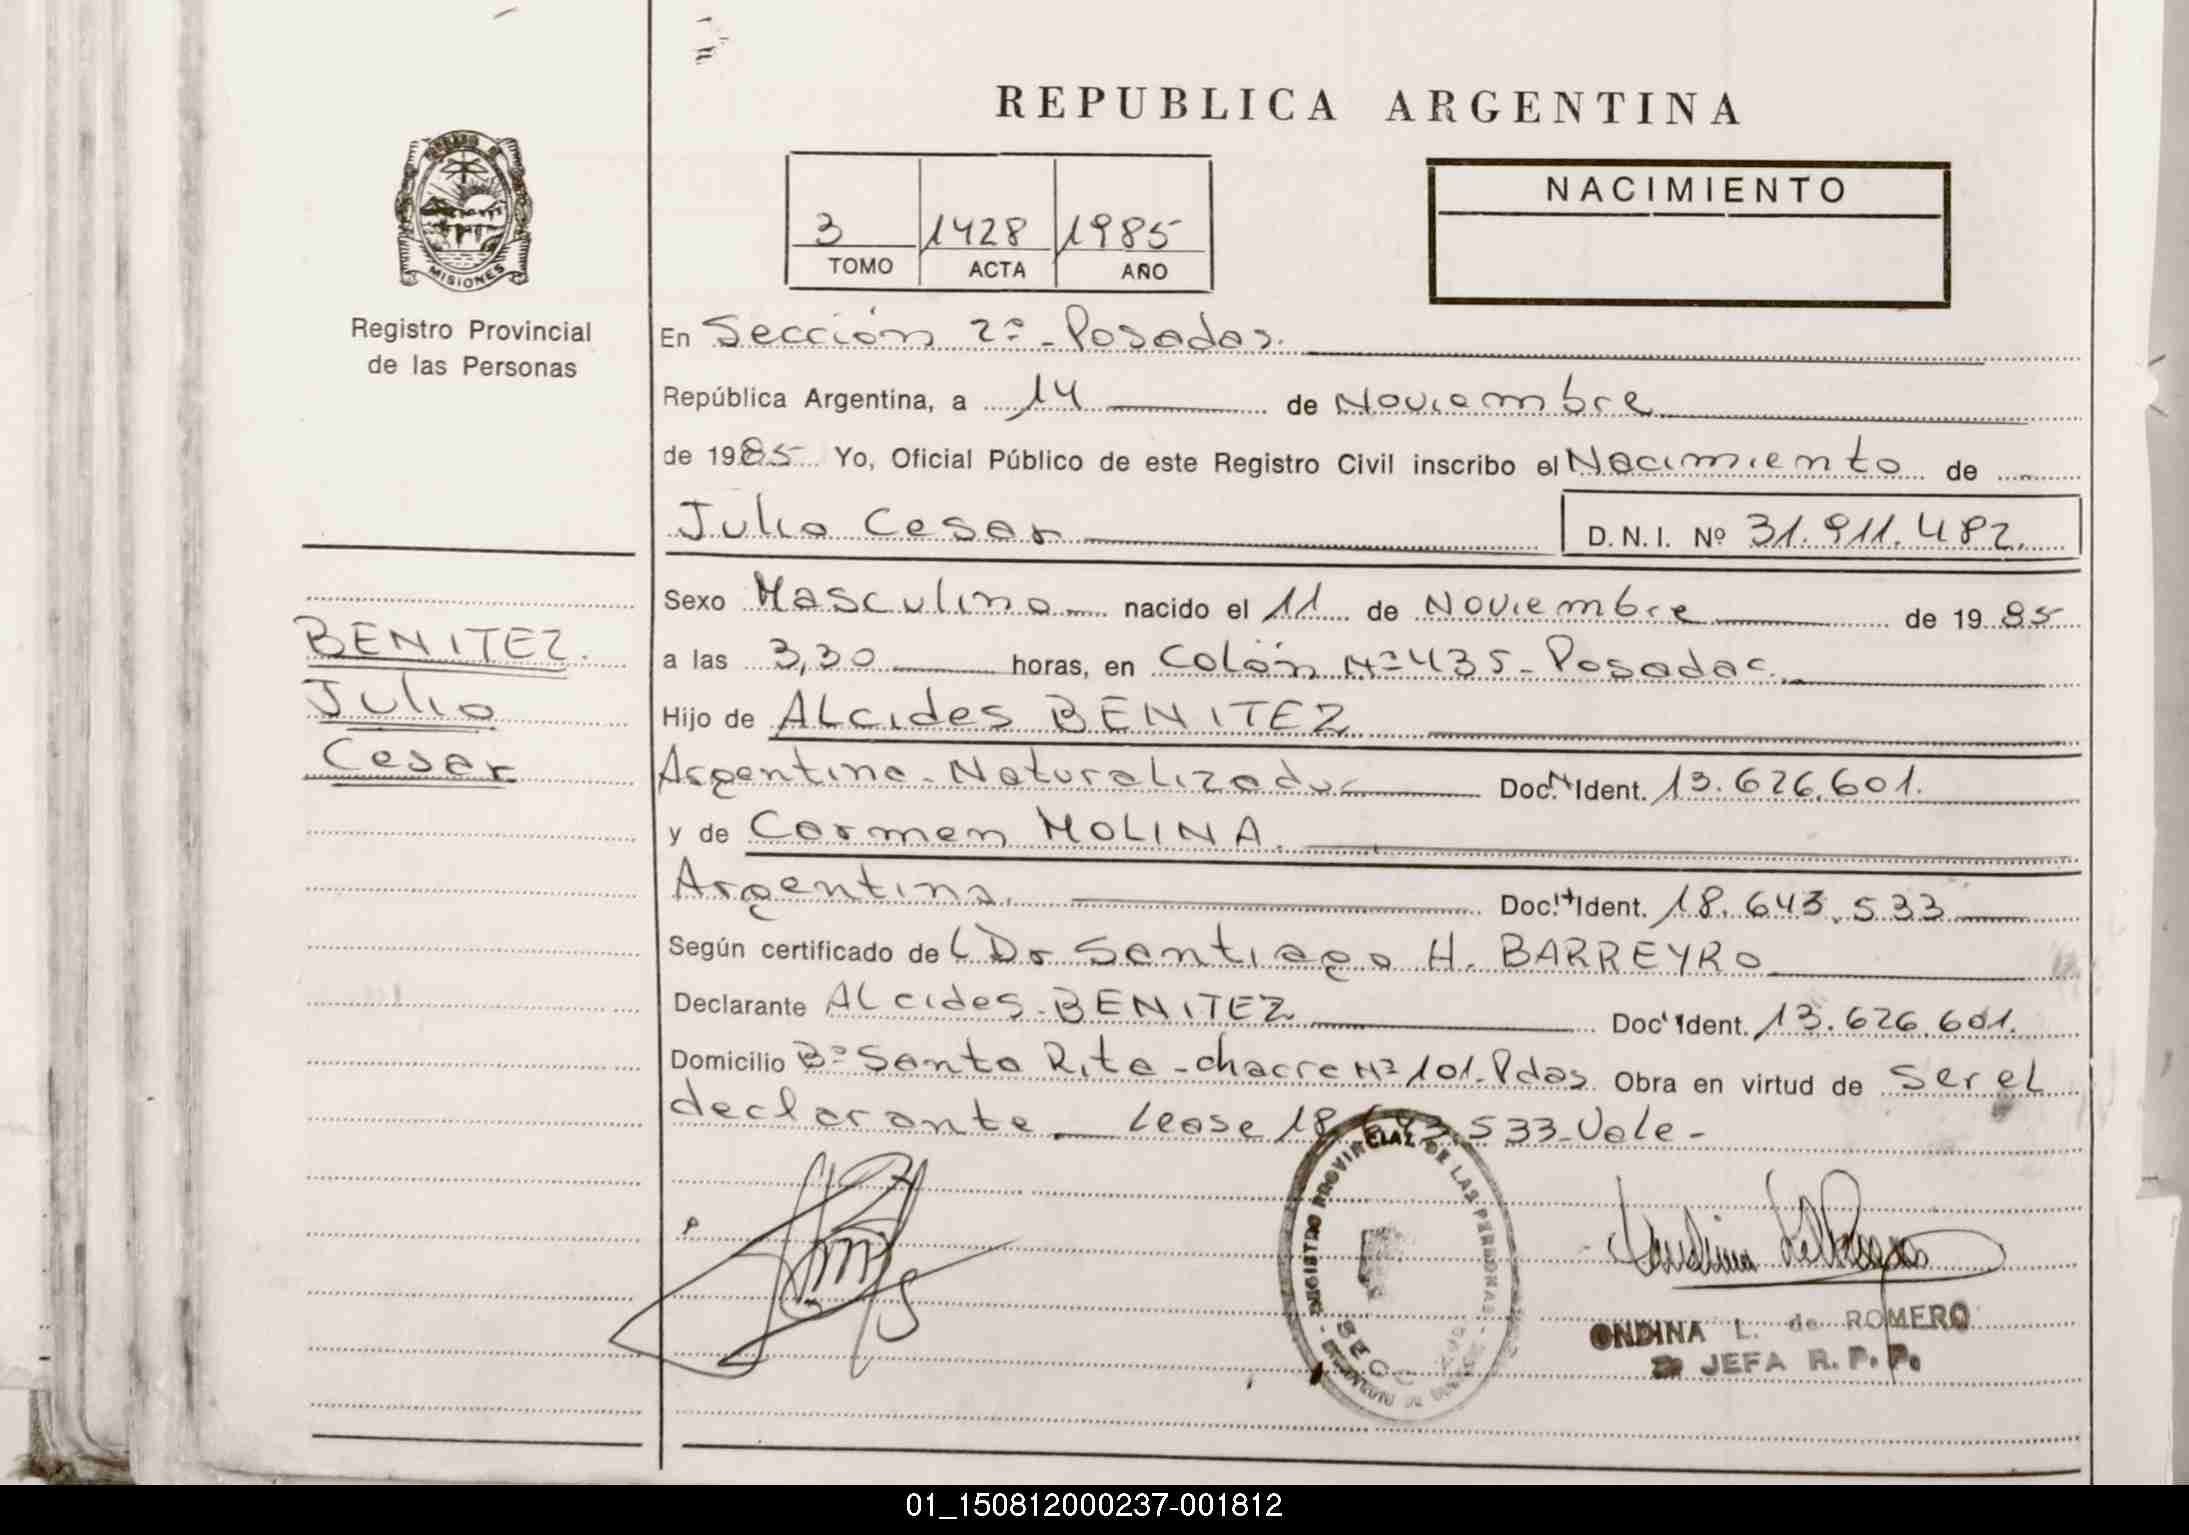 REPUBLICA ARGENTINA
MISIONES
Registro Provincial
de las Personas
3 1428 1985
TOMO ACTA AÑO
NACIMIENTO
En Sección 2º - Posadas.
República Argentina, a 14 de Noviembre
de 1985 Yo, Oficial Público de este Registro Civil inscribo el Nacimiento de
Julio Cesar D.N.I. Nº 31.911.482.
BENITEZ.
Julio
Cesar
Sexo Masculino nacido el 11 de Noviembre de 1985
a las 3,30 horas, en Colón Nº 435 - Posadas.
Hijo de ALcides BENITEZ
Argentino - Naturalizado Doc. N Ident. 13.626.601.
y de Carmen MOLINA.
Argentina. Doc. Ident. 18.643.533
Según certificado del Dr Santiago H. BARREYRO
Declarante ALcides - BENITEZ Doc Ident. 13.626.601.
Domicilio Bº Santa Rita - chacra Nº 101 - Pdas Obra en virtud de ser eL
declarante Lease 18.643.533 - Vale -
REGISTRO PROVINCIAL DE LAS PERSONAS
SECC
ONDINA L. de ROMERO
JEFA R. P. P.
01_150812000237-001812